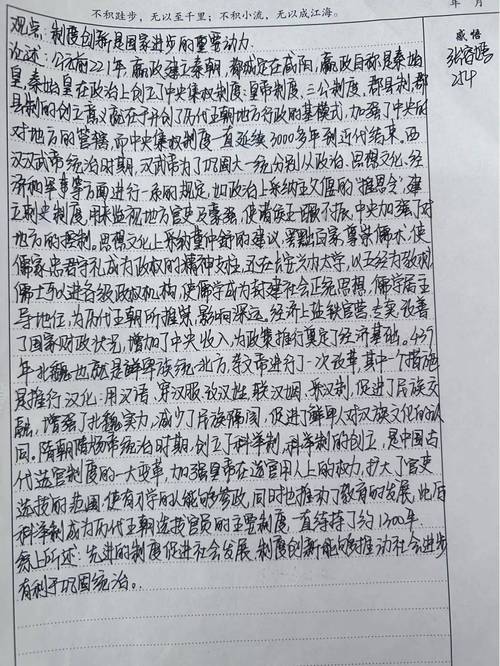 不积跬步，无以至千里；不积小流，无以成江海。
年 月
感悟
观点：制度创新是国家进步的重要动力.
论述：公元前221年，嬴政建立秦朝，都城定在咸阳，嬴政自称是秦始
皇，秦始皇在政治上创立了中央集权制度：皇帝制、三公制度、郡县制，郡
县制的创立意义在于开创了历代王朝地方行政的基模式，加强了中央的
对地方的管辖，而中央集权制度一直延续3000多年到近代结束。西
汉汉武帝统治时期，汉武帝为了巩固大一统分别从政治、思想文化、经
济和军事等方面进行一系的规定，如政治上采纳主父偃的"推恩令"，建
立刺史制度，用来监视地方官吏及豪强，使诸侯王服不振，中央加强了对
地方的控制。思想文化上采纳董仲舒的建议，罢黜百家，尊崇儒术，使
儒家忠君守礼成为政权的精神支柱，还在长安兴办太学，以五经为教观，
儒士可以进各级政权机构，使儒学成为封建社会正统思想，儒学居主
导地位，为历代王朝所推崇，影响深远。经济上盐铁官营、专卖，改善
了国家财政状况，增加了中央收入，为政策推行奠定了经济基础。439
年北魏也就是鲜卑族统一北方，孝文帝进行了一次改革，其中一个措施
是推行汉化：用汉语、穿汉服、改汉姓、联汉姻、采汉制，促进了民族交
融，增强了北魏实力，减少了民族隔阂，促进了鲜卑人对汉族文化的认
同。隋朝隋炀帝统治时期，创立了科举制，科举制的创立，是中国古
代选官制度的一大变革，加强皇帝在选官用人上的权力，扩大了官吏
选拔的范围，使有才学的人能够参政，同时也推动了教育的发展，此后
科举制成为历代王朝选拔官员的主要制度，一直持了约1300年.
综上所述：先进的制度促进社会发展，制度创新能够推动社会进步
有利于巩固统治。